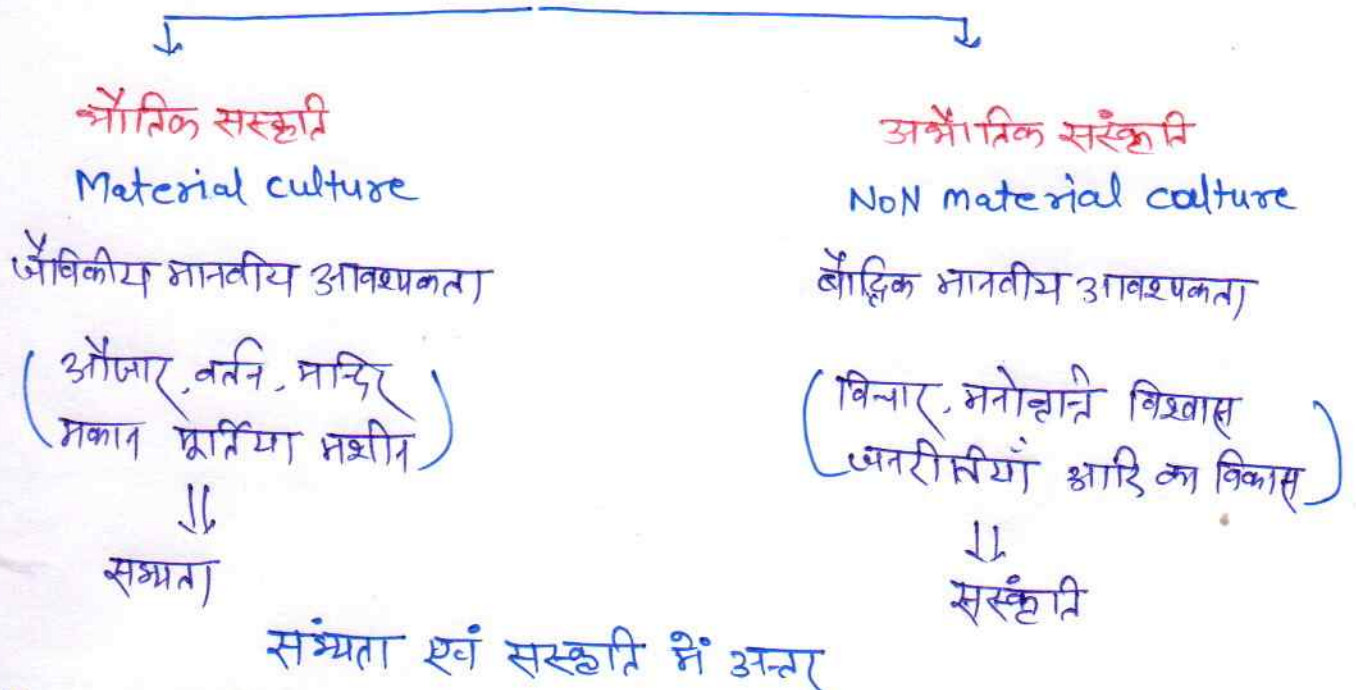 भौतिक सस्कृति
Material culture
जैविकीय मानवीय आवश्यकता
औजार, वर्तन, मन्दिर
मकान मूर्तिया मशीन
सभ्यता
अभौतिक संस्कृति
NoN material coulture
बौद्धिक मानवीय आवश्यकता
विचार, मनोवृत्ति विश्वास
जनरीतियाँ आदि का विकास
सस्कृंति
संभ्यता एवं सस्कृति में अन्तर